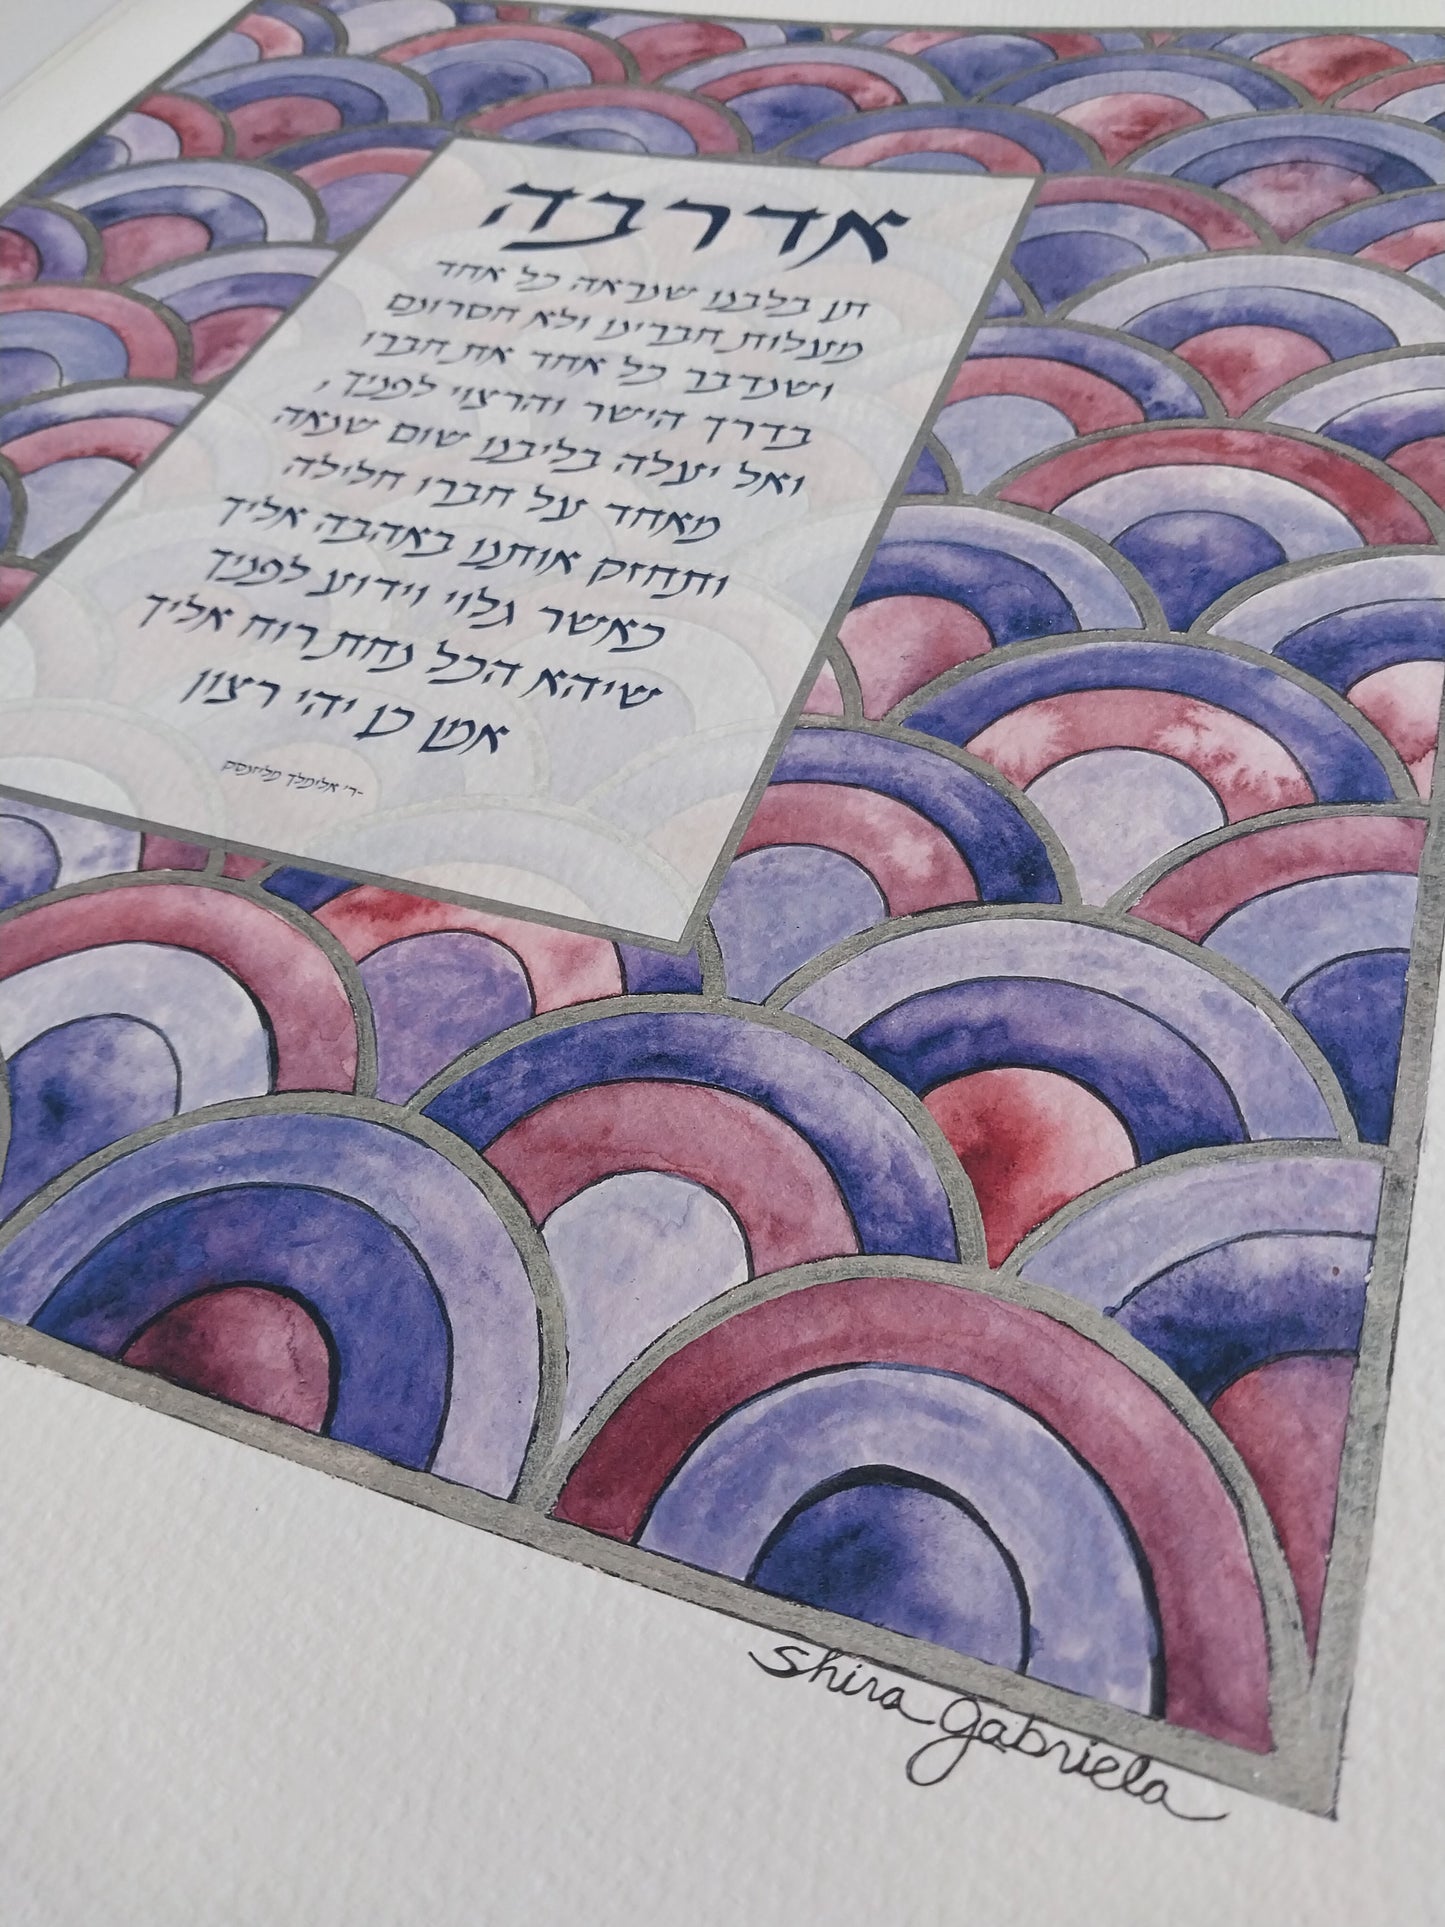 אדרבה
תן בלבנו שנראה כל אחד
מעלות חברינו ולא חסרונם
ושנדבר כל אחד את חברו
בדרך הישר והרצוי לפניך,
ואל יעלה בליבנו שום שנאה
מאחד על חברו חלילה
ותחזק אותנו באהבה אליך
כאשר גלוי וידוע לפניך
שיהא הכל נחת רוח אליך
אמן כן יהי רצון
-ר' אלימלך מליזנסק
shira gabriela